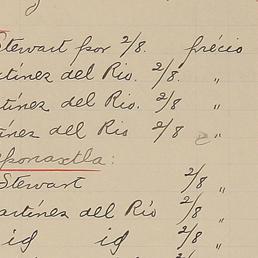 Stewart por 2/8. précio
tínez del Rio. 2/8. "
tínez del Rio. 2/8 "
ínez del Rio 2/8 "
ponaxtla:
Stewart 2/8 "
artínez del Rio 2/8 "
id id 2/8 "